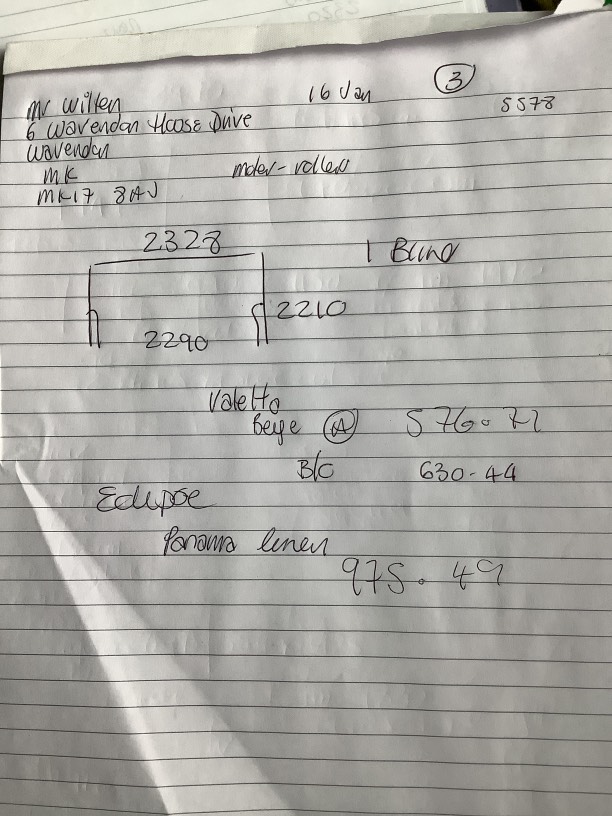 16 Jan 3
Mr Willen 5578
6 Wavendon House Drive
Wavendon
MK
MK17 8AJ
roller
2328
1 Blind
2210
2290
Valetto
Beige A 576.72
B/C 630.44
Eclipse
Panama linen
975.49